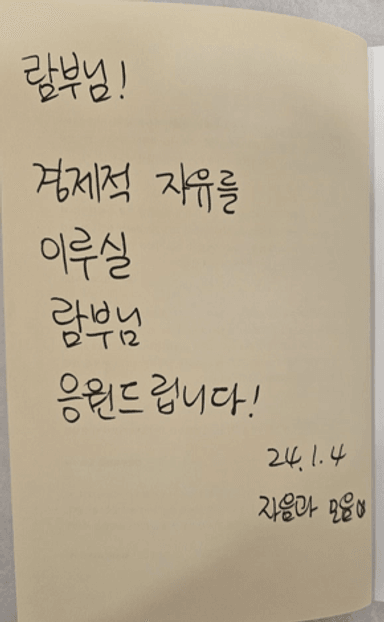 람부님!
경제적 자유를
이루실
람부님
응원드립니다!
24.1.4
자음과 모음